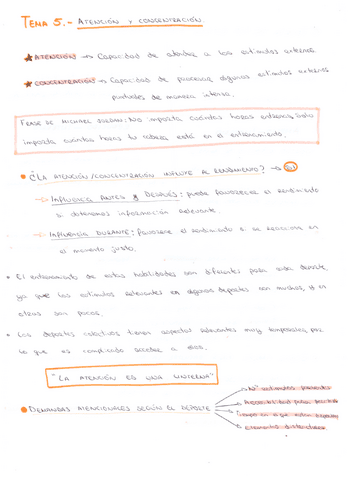 TEMA 5.- ATENCIÓN Y CONCENTRACIÓN.
ATENCIÓN → Capacidad de atender a los estímulos externos.
CONCENTRACIÓN → Capacidad de procesar algunos estímulos externos
puntuales de manera intensa.
FRASE DE MICHAEL JORDAN: No importa cuántas horas entrenes, solo
importa cuántas horas tu cabeza está en el entrenamiento.
¿LA ATENCIÓN/CONCENTRACIÓN INFLUYE AL RENDIMIENTO? →
INFLUENCIA ANTES Y DESPUÉS: puede favorecer el rendimiento
si obtenemos información relevante.
INFLUENCIA DURANTE: favorece el rendimiento si se reacciona en
el momento justo.
El entrenamiento de estas habilidades son diferentes para cada deporte,
ya que los estímulos relevantes en algunos deportes son muchos, y en
otros son pocos.
Los deportes colectivos tienen aspectos relevantes muy temporales, por
lo que es complicado acceder a ellos.
"LA ATENCIÓN ES UNA LINTERNA"
DEMANDAS ATENCIONALES SEGÚN EL DEPORTE
Nº estímulos presentes
para
tiempo en el que están
Elementos distractores